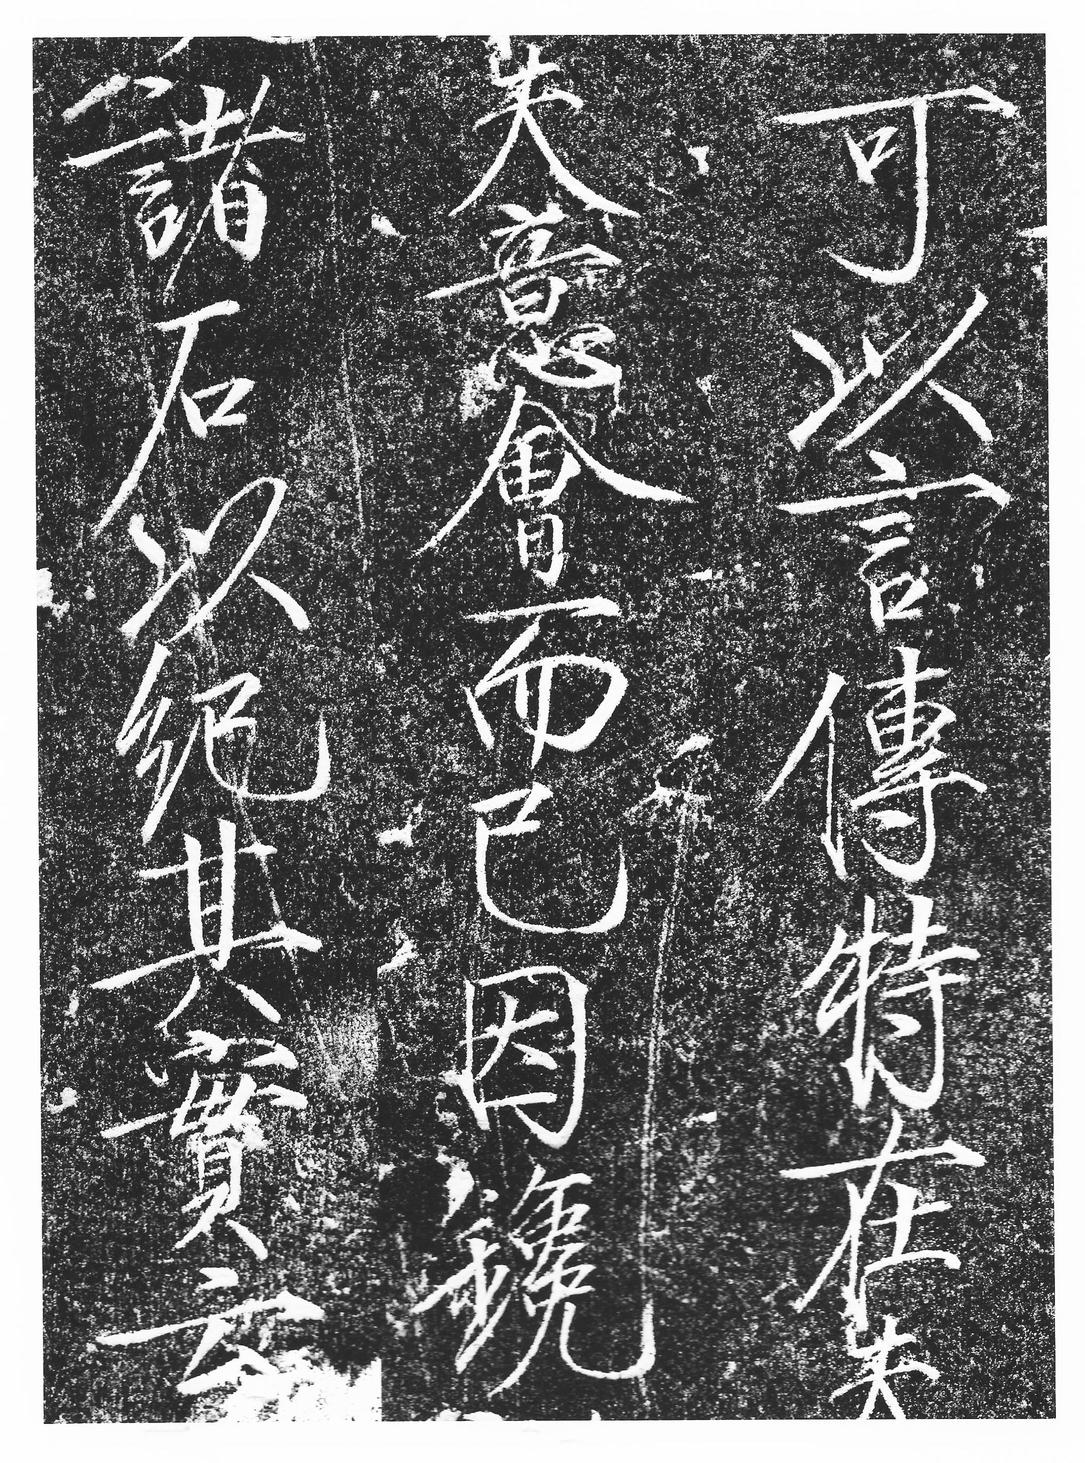 可以言傳特在夫
夫意會而已因鐫
諸石以紀其實云